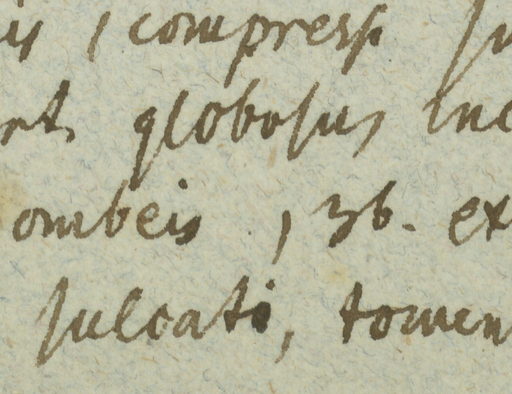 is, compress su
rt globosus inc
ombeis, 36. ex
sulcati, tomen